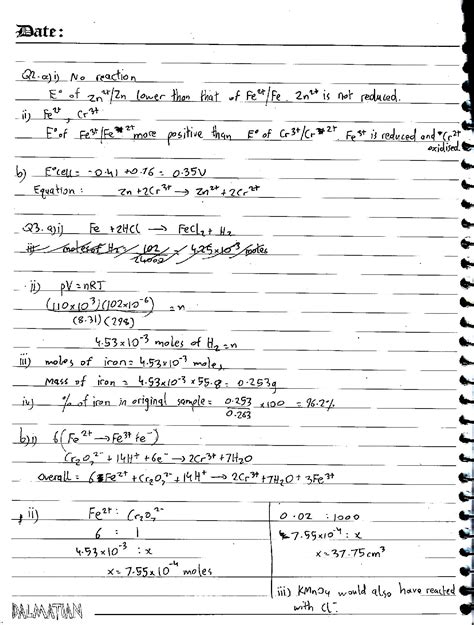 Date:
Q2.a)i) No reaction
E° of Zn²⁺/Zn lower than that of Fe²⁺/Fe. Zn²⁺ is not reduced.
ii) Fe²⁺, Cr³⁺
E° of Fe³⁺/Fe²⁺ more positive than E° of Cr³⁺/Cr²⁺. Fe³⁺ is reduced and Cr²⁺
oxidised.
b) E°cell = -0.41 +0.76 = 0.35V
Equation: Zn + 2Cr³⁺ → Zn²⁺ + 2Cr²⁺
Q3. a)i) Fe + 2HCl → FeCl₂ + H₂
ii) moles of H₂ = 102/24000 = 4.25×10⁻³ moles
ii) pV = nRT
(110×10³)(102×10⁻⁶)/(8.31)(298) = n
4.53×10⁻³ moles of H₂ = n
iii) moles of iron = 4.53×10⁻³ moles
Mass of iron = 4.53×10⁻³ × 55.8 = 0.253g
iv) % of iron in original sample = 0.253/0.263 ×100 = 96.2%
b)i) 6(Fe²⁺ → Fe³⁺ + e⁻)
Cr₂O₇²⁻ + 14H⁺ + 6e⁻ → 2Cr³⁺ + 7H₂O
Overall = 6Fe²⁺ + Cr₂O₇²⁻ + 14H⁺ → 2Cr³⁺ + 7H₂O + 3Fe³⁺
ii) Fe²⁺ : Cr₂O₇²⁻
6 : 1
4.53×10⁻³ : x
x = 7.55×10⁻⁴ moles
0.02 : 1000
7.55×10⁻⁴ : x
x = 37.75cm³
iii) KMnO₄ would also have reacted
with Cl⁻.
DALMATIAN